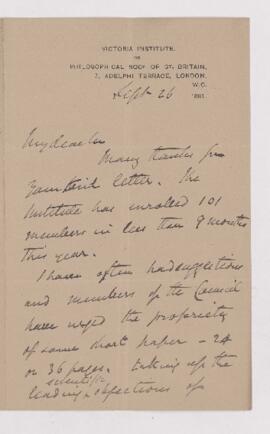 VICTORIA INSTITUTE,
OR
PHILOSOPHICAL SOCY OF GT. BRITAIN,
7, ADELPHI TERRACE, LONDON,
W.C.
Sept 26 1881.
My dear Sir
Many thanks for
Your kind letter. The
Institute has enrolled 101
members in less than 9 months
this year.
I have often had suggestions
and members of the Council
have urged the propriety
of some short paper – 24
or 36 pages. taking up the
scientific
leading objections of